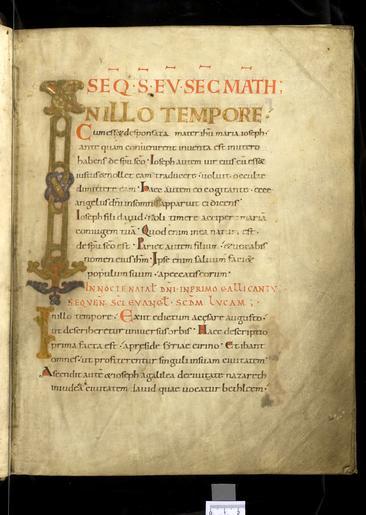 SEQ · S · EV · SEC MATH;
IN ILLO TEMPORE ·
Cum esset desponsata mater ihu maria ioseph ·
ante quam convenirent inventa est in utero
habens de spu sco · Ioseph autem vir eius cum esset
iustus & nollet eam traducere · voluit occulte
dimittere eam · Haec autem eo cogitante · ecce
angelus dni in somnis apparuit ei dicens
Ioseph fili david · noli timere accipere mariā
coniugem tuā · Quod enim in ea natum est ·
de spu sco est · Pariet autem filium · & vocabis
nomen eius ihm · Ipse enim salvum faciet
populum suum · a peccatis eorum ·
IN NOCTE NATAL DNI IN PRIMO GALLICANTV
SEQVEN SCI EVANGL · SCDM LVCAM;
In illo tempore · Exiit edictum a cesare augusto ·
ut describeretur universus orbis · Haec descriptio
prima facta est · a preside syriae cirino · Et ibant
omnes · ut profiterentur singuli in suam civitatem ·
Ascendit autē & ioseph a galilea de civitate nazareth
in iudeā civitatem david quae vocatur bethleem ·